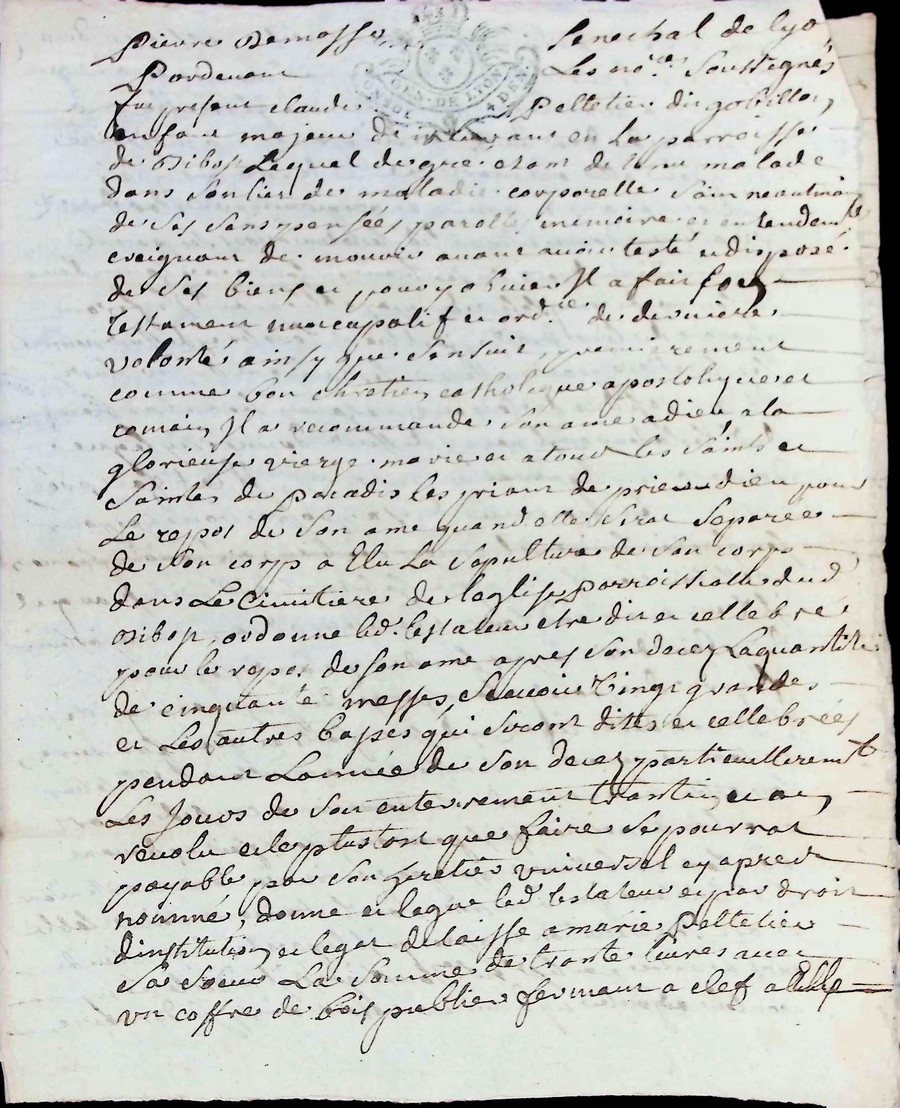 Pierre Demosse Senechal de lyo
Pardevant Les no.res Soussignés
fut present claude Pelletier dit gobillon,
enfant majeur demeurant en La parroisse
de Bibost Lequel de gre etant detenu malade
dans Son lict de maladie corporelle Sain neautmoins
de Ses Sens pensées parolle memoire et entendemt
creignant de mourir avant avoir testé et disposé
de Ses biens et pour y obvier Il a fait Son
testament nuncupatif et ord.ce de derniere
volonté ainsy que Sensuit, premierement
comme bon chretien catholique apostolique et
romain, Il a recommandé Son ame a dieu a la
glorieuse vierge marie et a tous les Saints et
Saintes de paradis les priant de prier dieu pour
Le repos de Son ame quand elle Serat Separée
de Son corp a Elu La Sepulture de Son corp
dans Le Cimitiere de leglise parroissialle dud
Bibost, ordonne led. testateur etre dit et cellebré
pour le repos de Son ame apres Son decez Laquantité
de cinquante messes, Scavoir Vingt grandes
et Les autres basses qui Seront dittes et cellebrées
pendant Lannée de Son decez particullieremt
Les Jours de Son enterrement trantin, et an,
revolu et le plustost que faire Se pourrat
payable par Son heretier universel cy apres
nommé, donne et legue led. testateur et par droit
dinstitution, et legat delaisse a marie Pelletier
Sa Soeur La Somme de trante livres avec
un coffre de bois publier fermant a clef a Elle